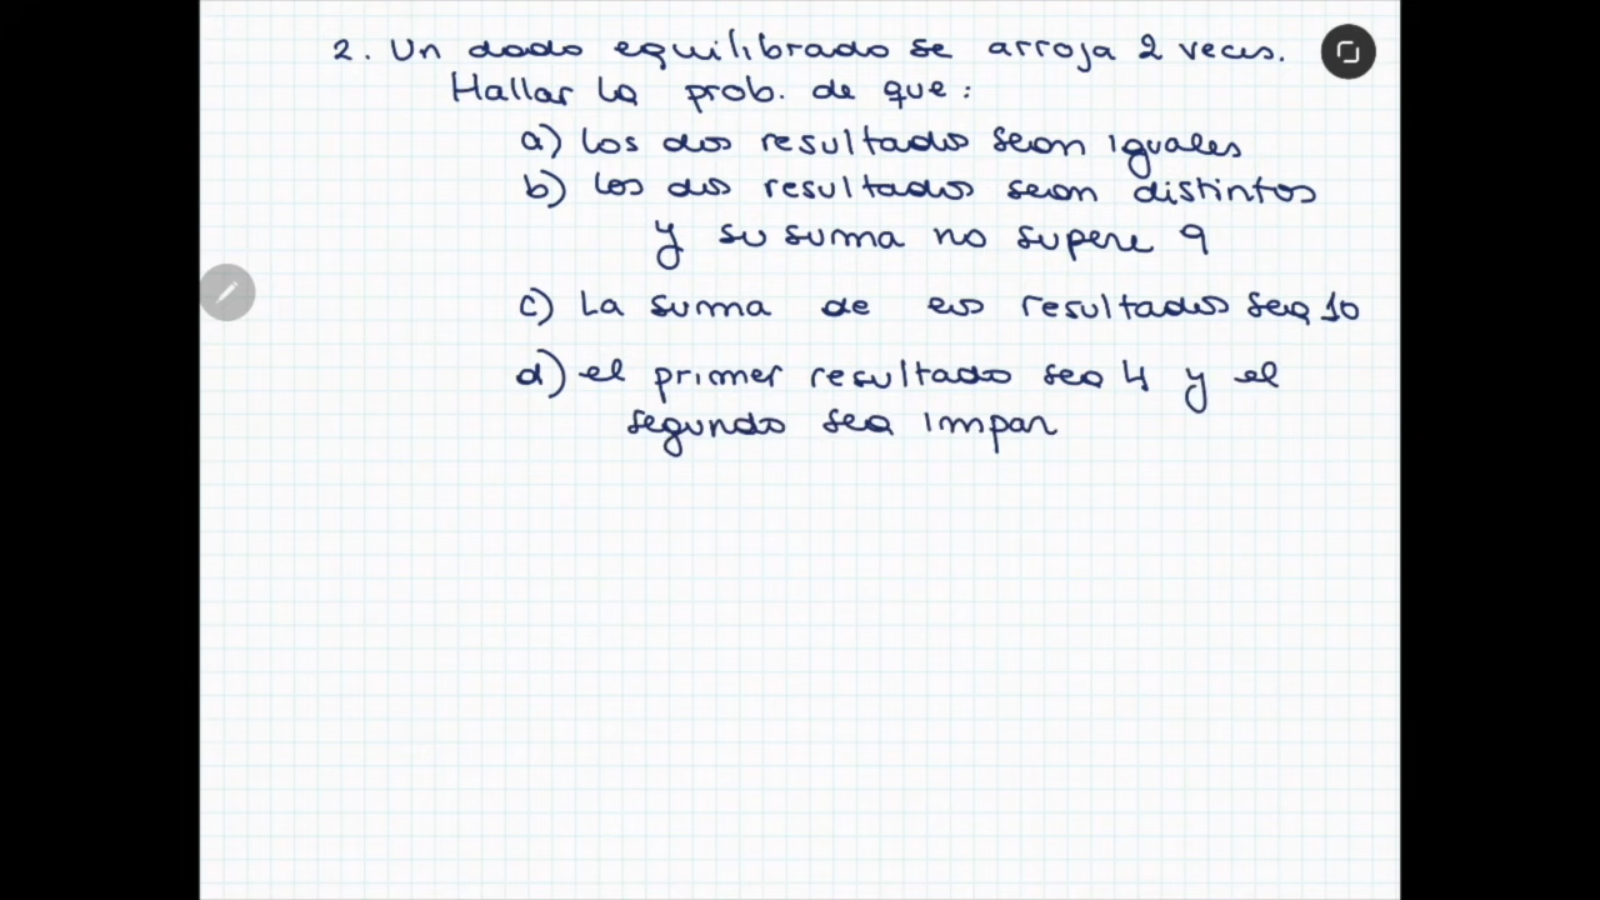 2. Un dado equilibrado se arroja 2 veces.
Hallar la prob. de que:
a) los dos resultados sean iguales
b) los dos resultados sean distintos
y su suma no supere 9
c) La suma de los resultados sea 10
d) el primer resultado sea 4 y el
segundo sea impar